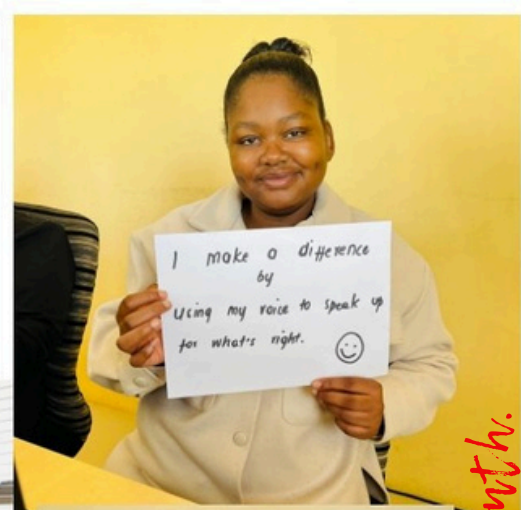 I make a difference
by
using my voice to speak up
for what's right.
nth.